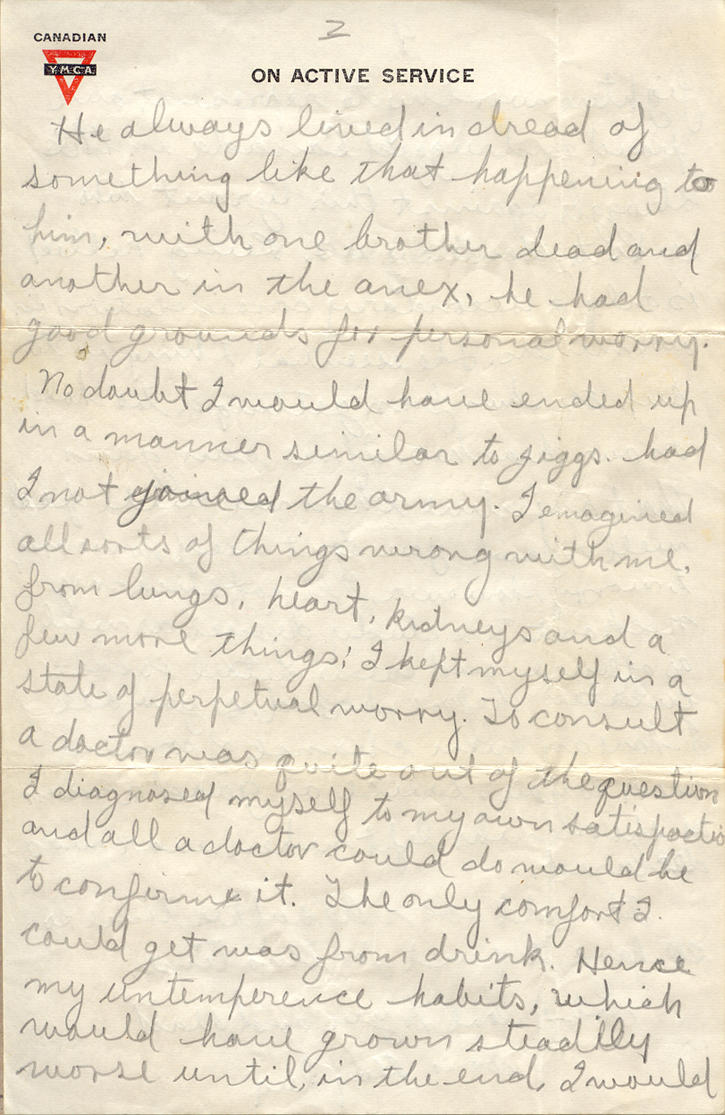 2
CANADIAN
Y.M.C.A.
ON ACTIVE SERVICE
He always lived in dread of
something like that happening to
him, with one brother dead and
another in the anex, he had
good grounds for personal worry.
No doubt I would have ended up
in a manner similar to Jiggs. had
I not joined the army. I emagined
all sorts of things wrong with me,
from lungs, heart, kidneys and a
few more things; I kept myself in a
state of perpetual worry. To consult
a doctor was quite out of the question
I diagnosed myself to my own satisfactio
and all a doctor could do would be
to confirm it. The only comfort I
could get was from drink. Hence
my untemperence habits, which
would have grown steadily
worse until, in the end, I would